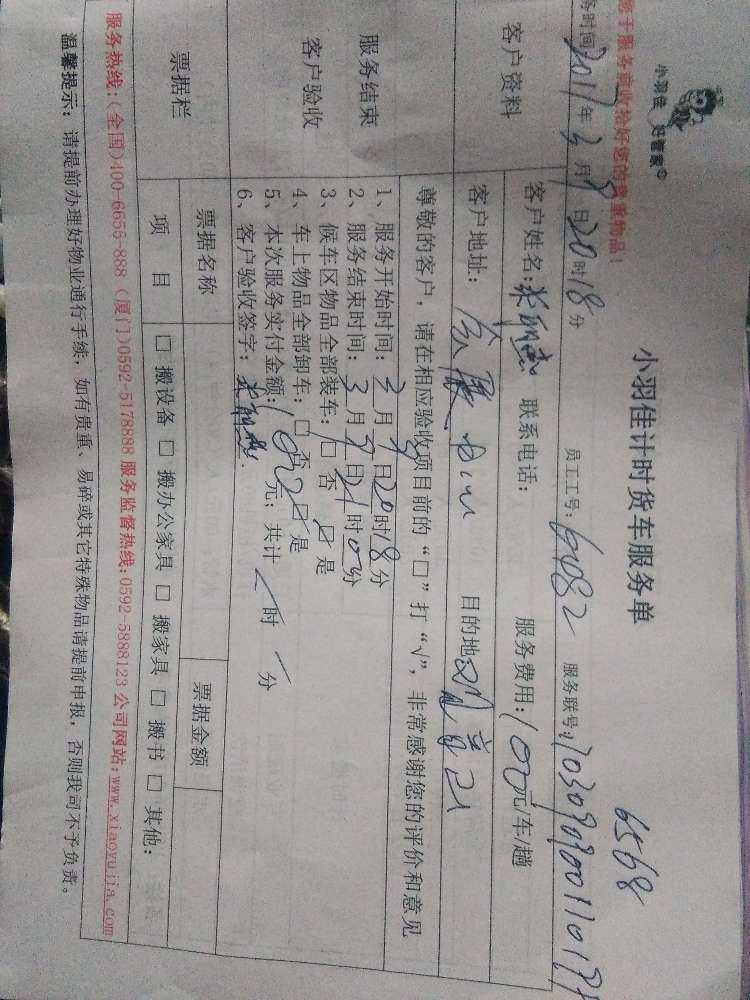 小羽佳 好管家©
于服务前收拾好您的贵重物品！
小羽佳计时货车服务单
6568
务时间 2017年3月9日20时18分 员工工号：6482 服务联号：
客户资料
客户姓名： 联系电话： 服务费用：100元/车/趟
客户地址： 目的地
尊敬的客户，请在相应验收项目前的“□”打“√”，非常感谢您的评价和意见
服务结束
客户验收
1、服务开始时间：3月9日20时18分
2、服务结束时间：3月9日21时0分
3、候车区物品全部装车：□ 否 ☑ 是
4、车上物品全部卸车：□ 否 ☑ 是
5、本次服务实付金额：100元；共计 时 分
6、客户验收签字：
票据栏
票据名称 票据金额
项 目 □ 搬设备 □ 搬办公家具 □ 搬家具 □ 搬书 □ 其他：
服务热线：(全国)400-6655-888 (厦门)0592-5178888 服务监督热线:0592-5888123 公司网站：www.xiaoyujia.com
温馨提示：请提前办理好物业通行手续，如有贵重、易碎或其它特殊物品请提前申报，否则我司不予负责。